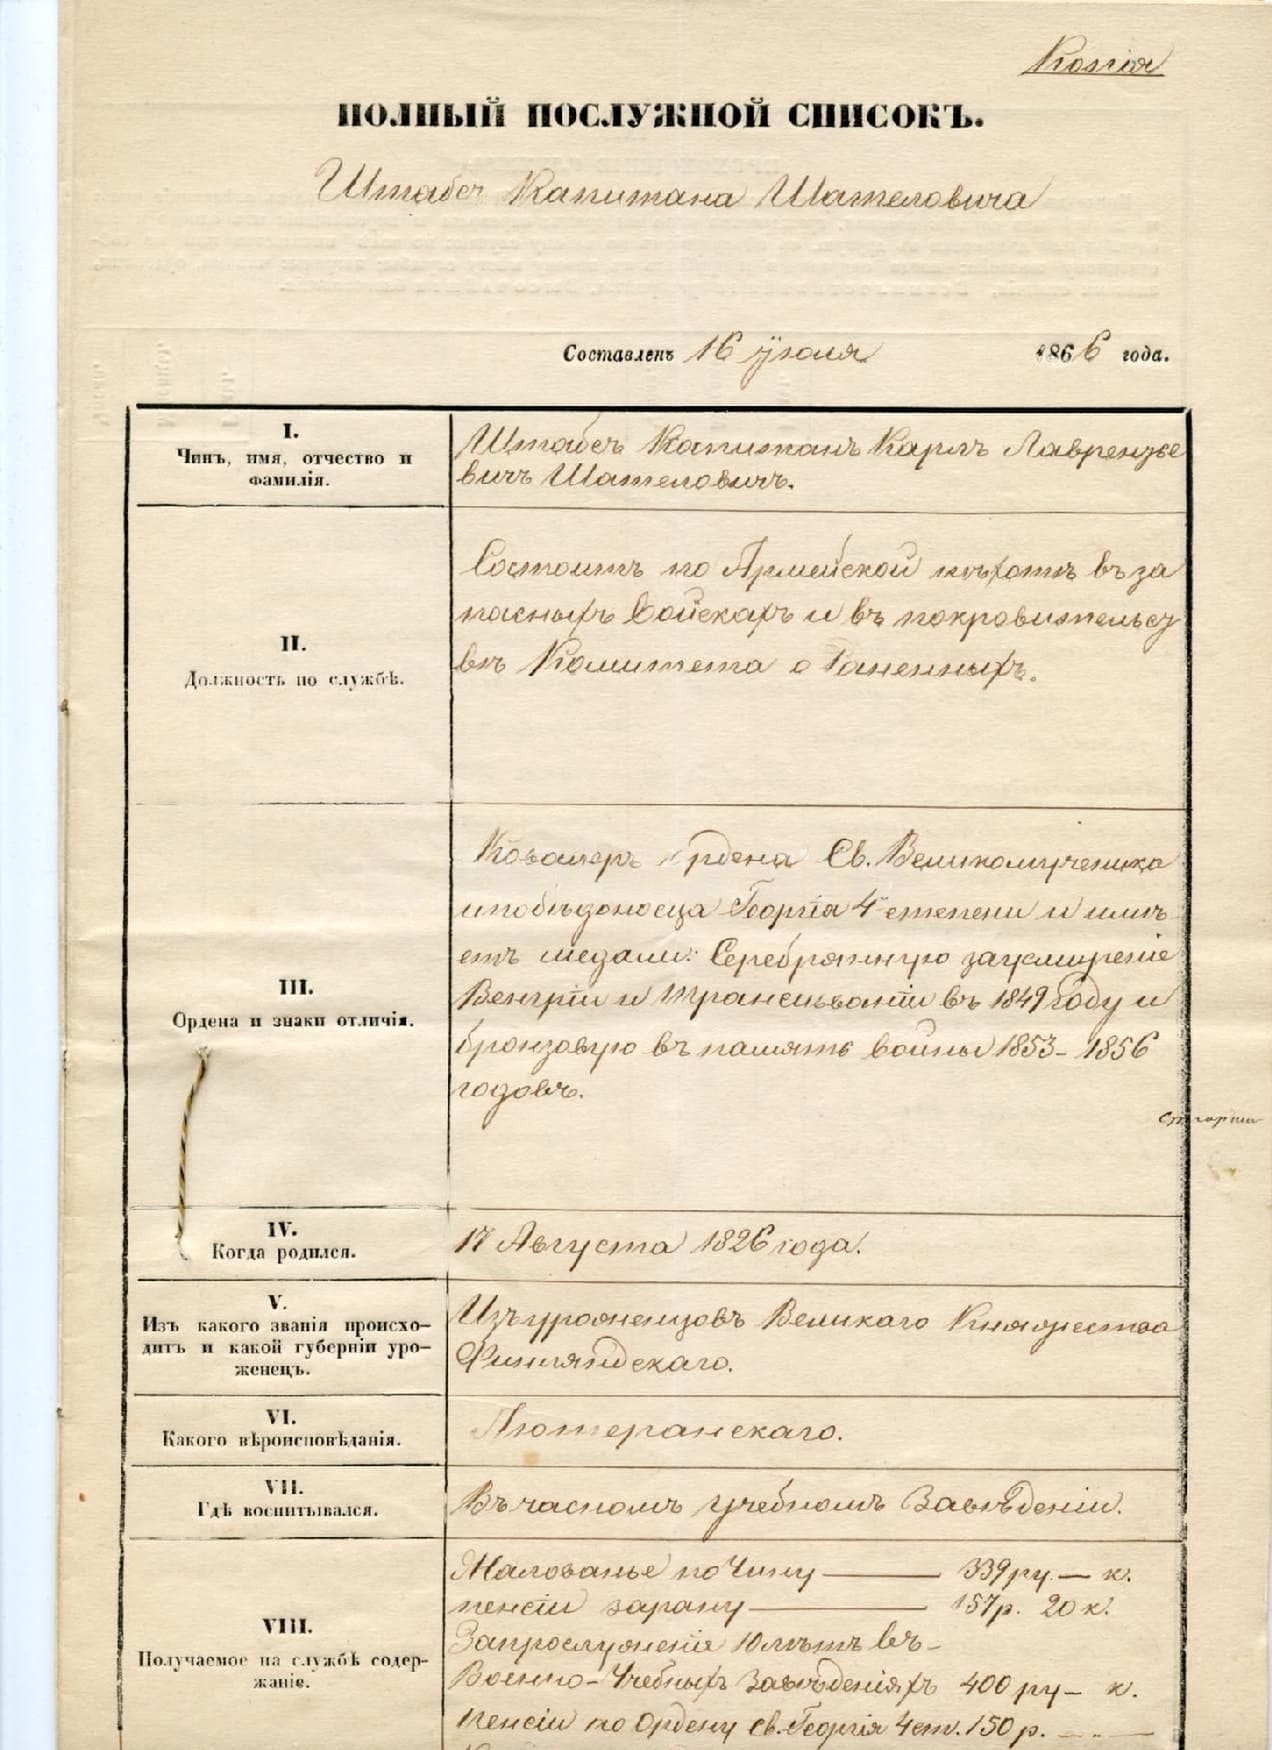 Копія
ПОЛНЫЙ ПОСЛУЖНОЙ СПИСОКЪ.
Штабсъ Капитана Шателовича
Составленъ 16 Іюля 1866 года.
I.
Чинъ, имя, отчество и
фамилія.
Штабсъ Капитанъ Карлъ Лавренгье
вичъ Шателовичъ.
II.
Должность по службѣ.
Состоитъ по Армейской пѣхотѣ въ за
пасныхъ войскахъ и въ покровительст
вѣ Комитета о Раненныхъ.
III.
Ордена и знаки отличія.
Кавалеръ ордена Св. Великомученика
и побѣдоносца Георгія 4й степени и имѣ-
етъ медали: Серебрянную за усмиреніе
Венгріи и Трансильваніи въ 1849 году и
бронзовую въ память войны 1853-1856
годовъ.
IV.
Когда родился.
17 Августа 1826 года.
V.
Изъ какого званія происхо-
дитъ и какой губерніи уро-
женецъ.
Изъ уроженцовъ Великаго Княжества
Финляндскаго.
VI.
Какого вѣроисповѣданія.
Лютеранскаго.
VII.
Гдѣ воспитывался.
Въ часномъ учебномъ Заведеніи.
VIII.
Получаемое на службѣ содер-
жаніе.
Жалованье по Чину — 339 ру — к.
пенсіи за рану — 157 р. 20 к.
За прослуженіе 10 лѣтъ въ-
Военно-Учебныхъ Заведеніяхъ 400 ру — к.
пенсіи по Ордену Св. Георгія 4 ст. 150 р.